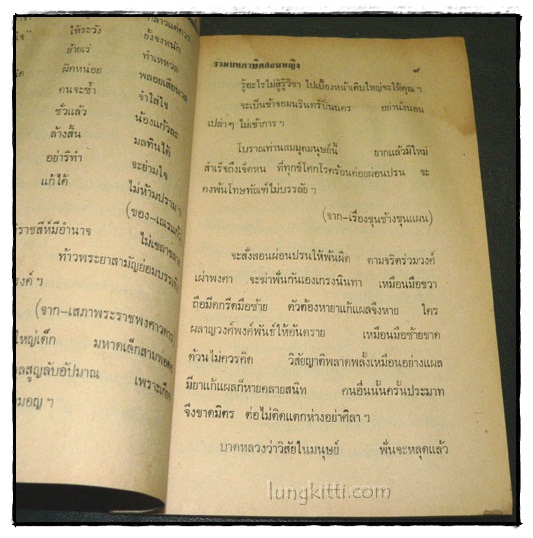 ให้ระวัง
ย้ายเร่
ผิดหน่อย
คนจะซ้ำ
ชั่วแล้ว
ล้างสิ้น
อย่าริทำ
แก้ได้
ราชสีห์มีอำนาจ
ยั้งจงหนัก
ทำเหหวล
จำใส่ใจ
น้องแก้วละ
มลทินได้
จะย่ามใจ
ไม่ห้ามปราม ฯ
ท้าวพระยาสามัญย่อม
(จาก-เสภาพระราชพงศาวดาร)
ใหญ่เด็ก มหาดเล็กสาม
ลสูญลับอัปมาณ
รวมบทภาษิตสอนหญิง ๙
รู้อะไรไม่สู้รู้วิชา ไปเบื้องหน้าเติบใหญ่จะให้คุณ ฯ
จะเป็นข้าจอมนรินทร์ปิ่นนคร อย่านั่งนอน
เปล่าๆ ไม่เข้าการ ฯ
โบราณท่านสมมุตมนุษย์นี้ ยากแล้วมีใหม่
สำเร็จถึงเจ็ดหน ที่ทุกข์โศกโรคร้อนค่อยผ่อนปรน จะ
คงพ้นโทษทัณฑ์ไม่บรรลัย ฯ
(จาก-เรื่องขุนช้างขุนแผน)
จะสั่งสอนผ่อนปรนให้พ้นผิด ตามจริตร่วมวงศ์
เผ่าพงศา จะฆ่าฟันกันเองเกรงนินทา เหมือนมือขวา
ถือมีดกรีดมือซ้าย ตัวต้องหายาแก้แผลจึงหาย ใคร
ผลาญวงศ์พงศ์พันธุ์ให้อันตราย เหมือนมือซ้ายขาด
ด้วนไม่ควรคิด วิสัยญาติพลาดพลั้งเหมือนอย่างแผล
มียาแก้แผลก็หายคลายสนิท คนอื่นนั้นครั้นประมาท
จึงขาดมิตร ต่อไม่ติดแตกห่างอย่างศิลา ฯ
บาดหลวงว่าวิสัยในมนุษย์ ฟันจะหลุดแล้ว
lungkitti.com